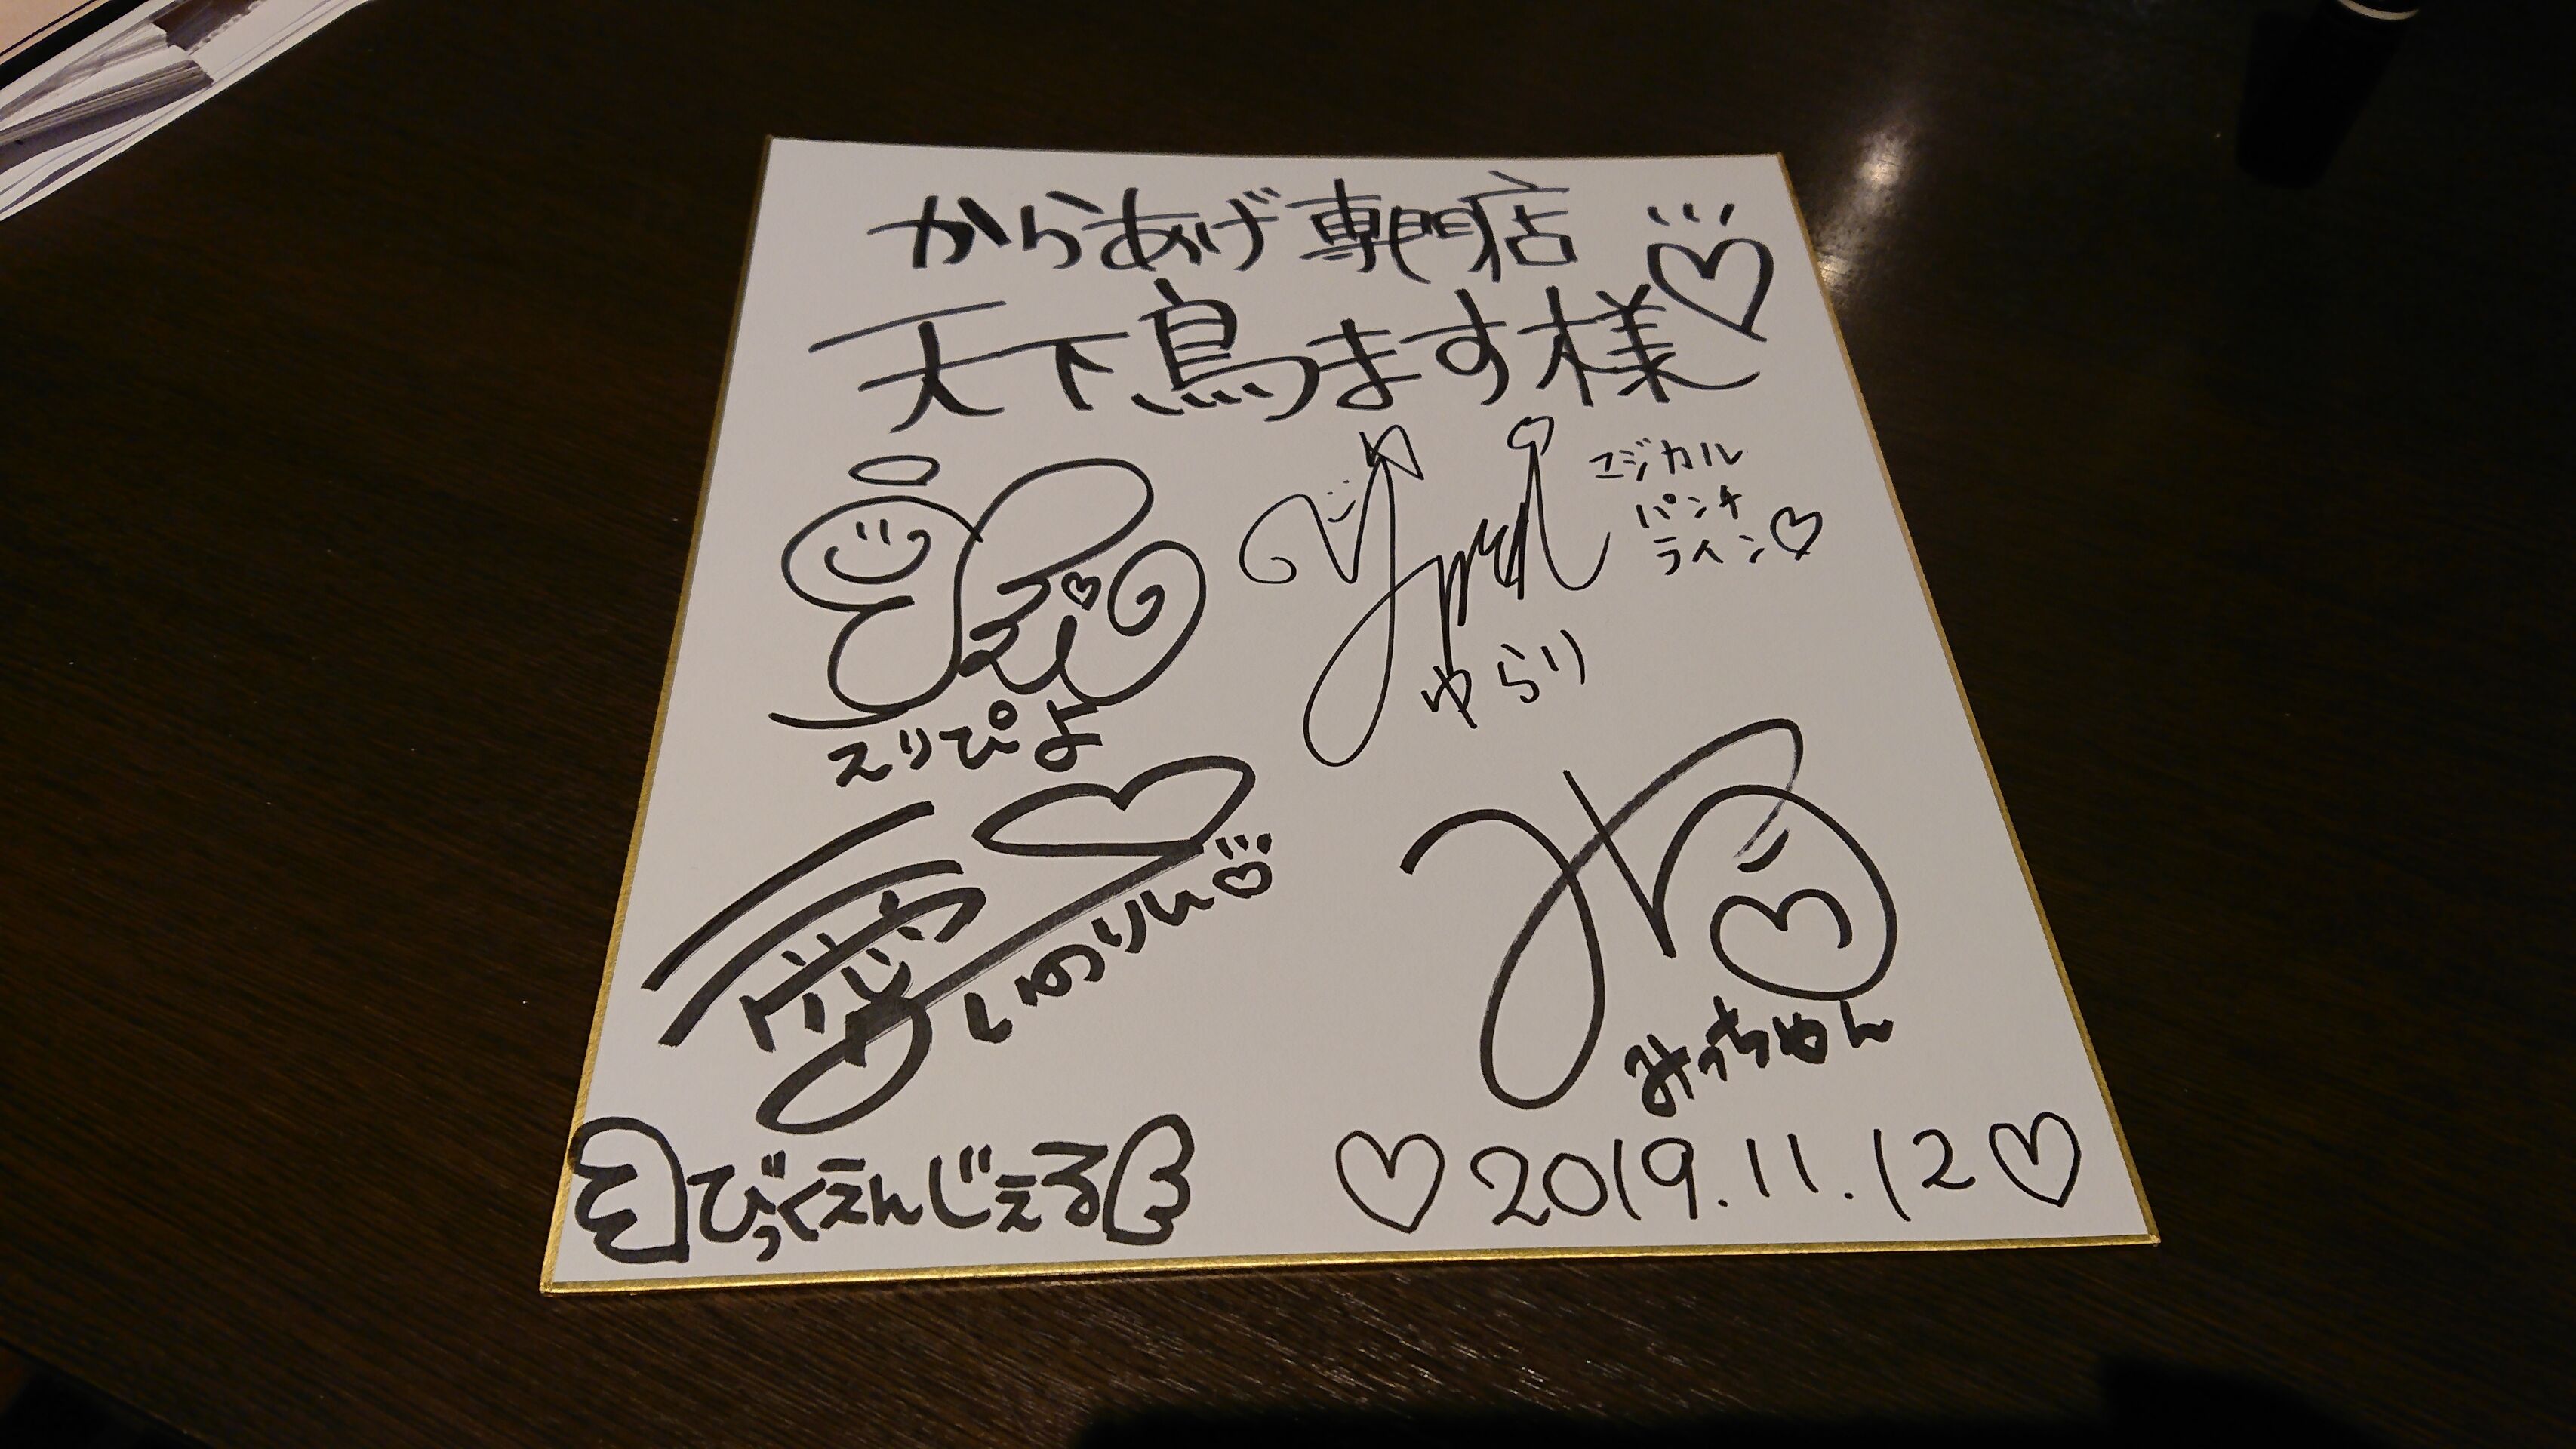 からあげ専門店
天下鳥ます様
マジカル
パンチ
ライン
ゆらり
えりぴよ
いのりん
みっちゃん
びっくえんじぇる
2019.11.12